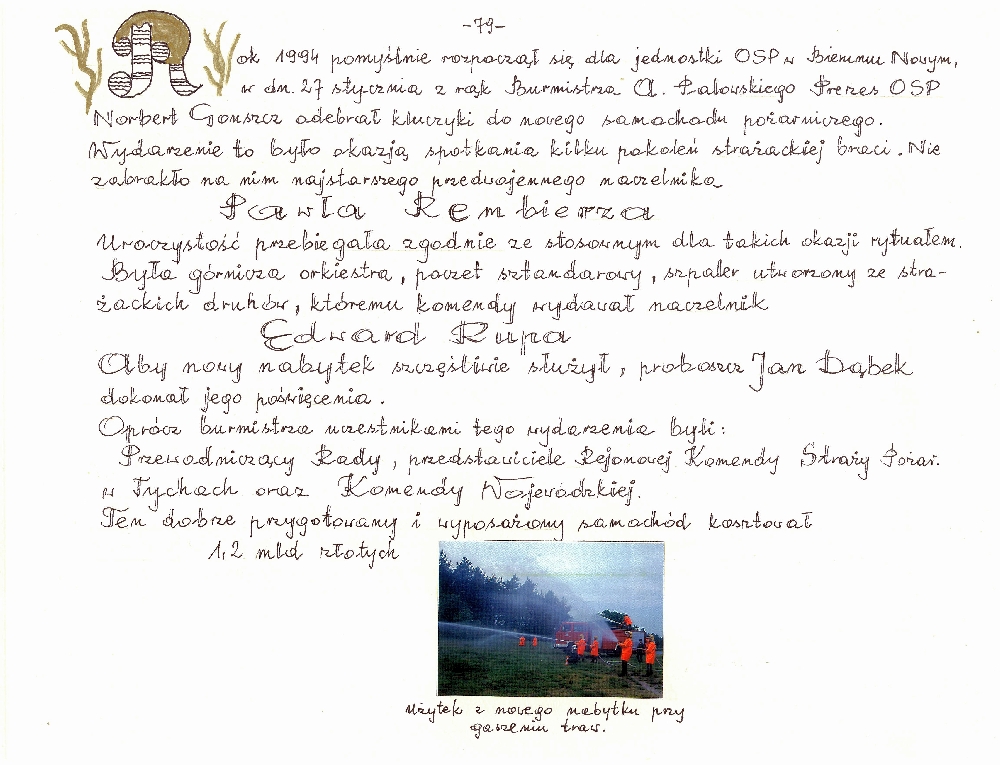 -79-
Rok 1994 pomyślnie rozpoczął się dla jednostki OSP w Bieruniu Nowym,
w dn. 27 stycznia z rąk Burmistrza A. Pałowskiego Prezes OSP
Norbert Gonszcz odebrał kluczyki do nowego samochodu pożarniczego.
Wydarzenie to było okazją spotkania kilku pokoleń strażackiej braci. Nie
zabrakło na nim najstarszego przedwojennego naczelnika
Pawła Rembierza
Uroczystość przebiegała zgodnie ze stosownym dla takich okazji rytuałem.
Była górnicza orkiestra, poczet sztandarowy, szpaler utworzony ze stra-
żackich druhów, któremu komendy wydawał naczelnik
Edward Kupa
Aby nowy nabytek szczęśliwie służył, proboszcz Jan Dąbek
dokonał jego poświęcenia.
Oprócz burmistrza uczestnikami tego wydarzenia byli:
Przewodniczący Rady, przedstawiciele Rejonowej Komendy Straży Pożar.
w Tychach oraz Komendy Wojewódzkiej.
Ten dobrze przygotowany i wyposażony samochód kosztował
1,2 mld złotych
Użytek z nowego nabytku przy
gaszeniu traw.